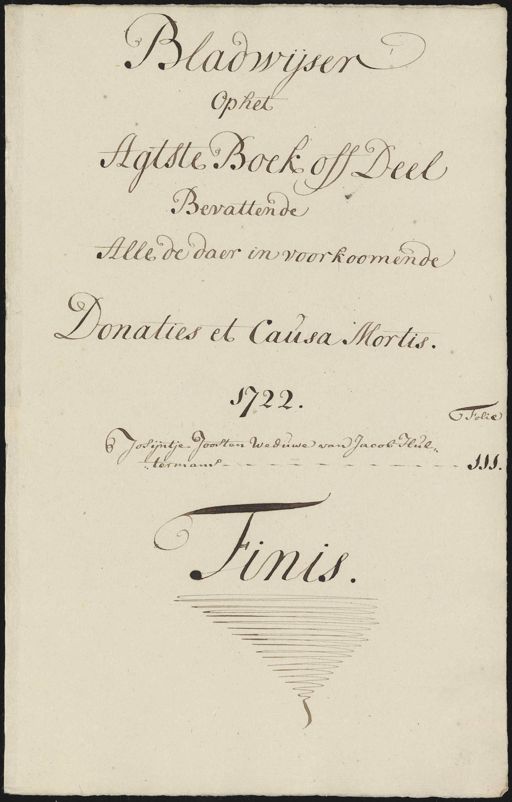 Bladwijser
Op het
Agtste Boek off Deel
Bevattende
Alle de daer in voorkoomende
Donaties et Causa Mortis.
1722.
Folie
Josijntje Joosten Weduwe van Jacob Hul„
„termans - - - - - - - - - - - - - - 111.
Finis.